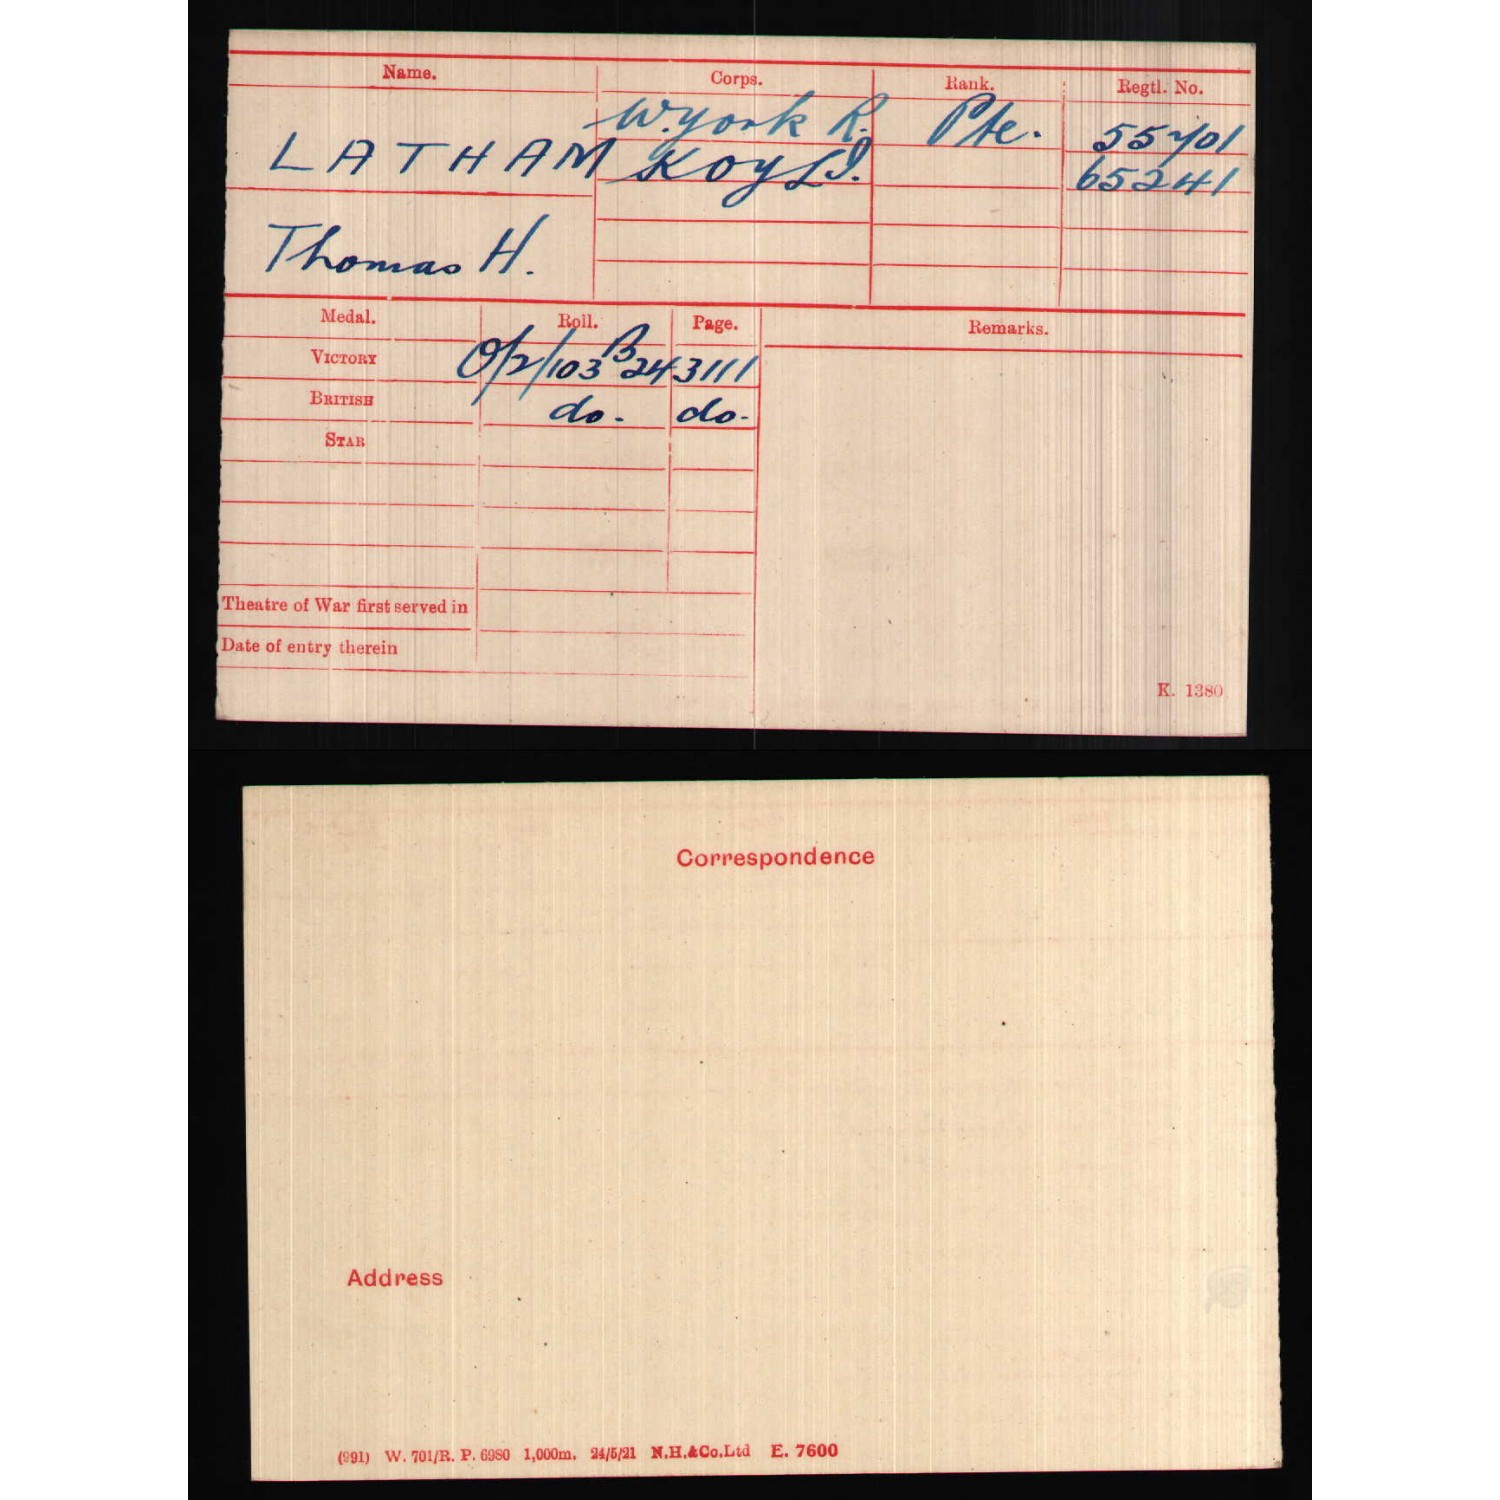 Name. Corps. Rank. Regtl. No.
W. York R. Pte. 55701
LATHAM KOYLI. 65241
Thomas H.
Medal. Roll. Page. Remarks.
VICTORY O/2/103 B 24 3111
BRITISH do. do.
STAR
Theatre of War first served in
Date of entry therein
K. 1380
Correspondence
Address
(991) W. 701/R. P. 6980 1,000m. 24/5/21 N.H.&Co.Ltd E. 7600